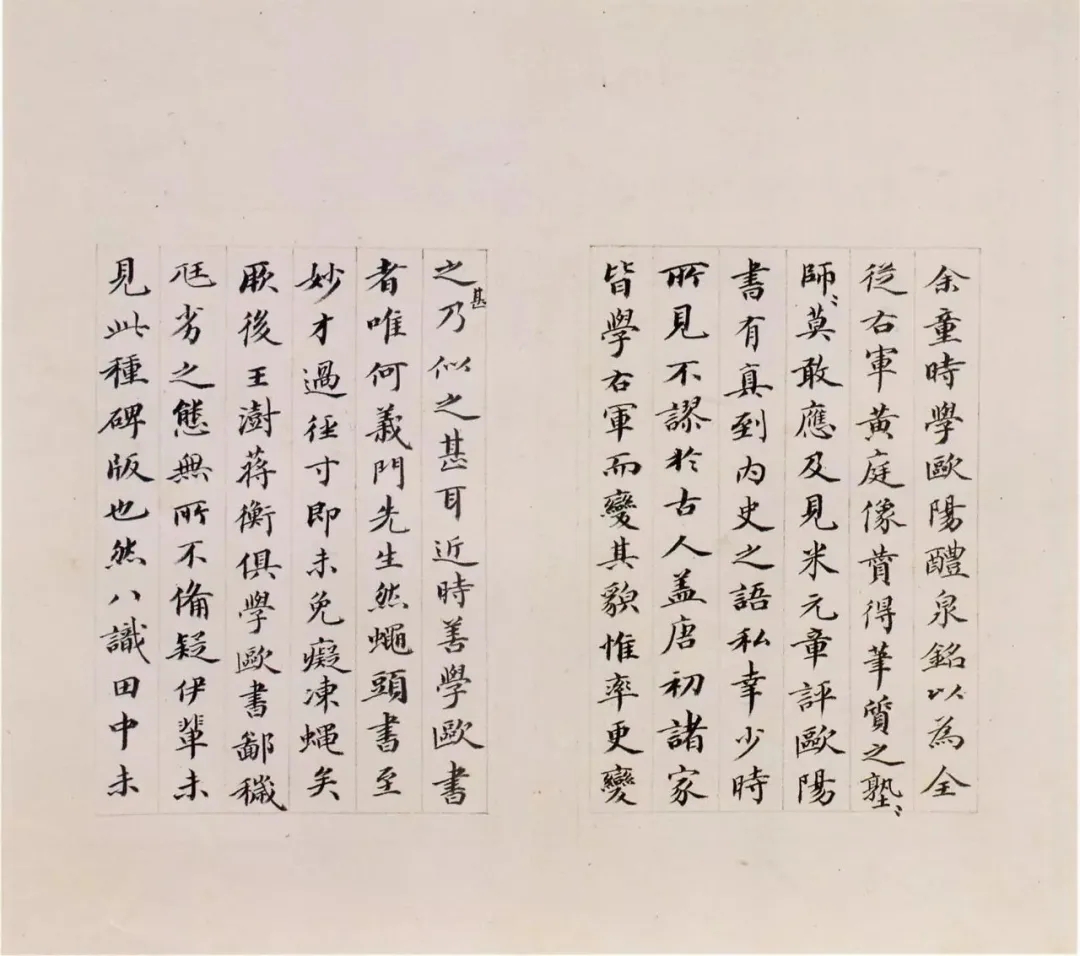 余童時學歐陽醴泉銘以為全
從右軍黃庭像賛得筆質之塾〻
師〻莫敢應及見米元章評歐陽
書有真到內史之語私幸少時
所見不謬於古人盖唐初諸家
皆學右軍而變其貌惟率更變
之甚乃似之甚耳近時善學歐書
者唯何義門先生然蠅頭書至
妙才過徑寸即未免癡凍蠅矣
厥後王澍蔣衡俱學歐書鄙穢
尫劣之態無所不備疑伊輩未
見此種碑版也然八識田中未